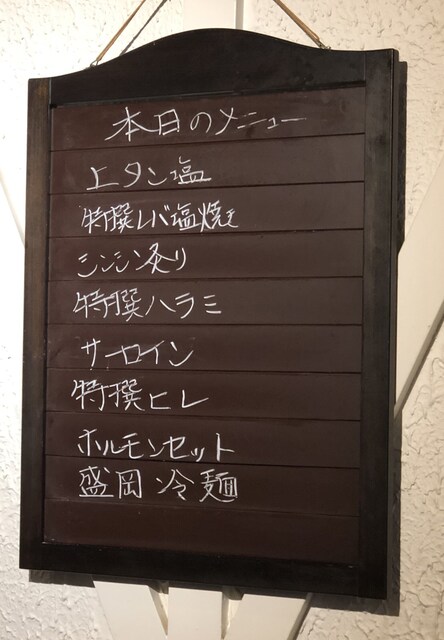 本日のメニュー
上タン塩
特撰レバ塩焼き
シンシン炙り
特撰ハラミ
サーロイン
特撰ヒレ
ホルモンセット
盛岡冷麺